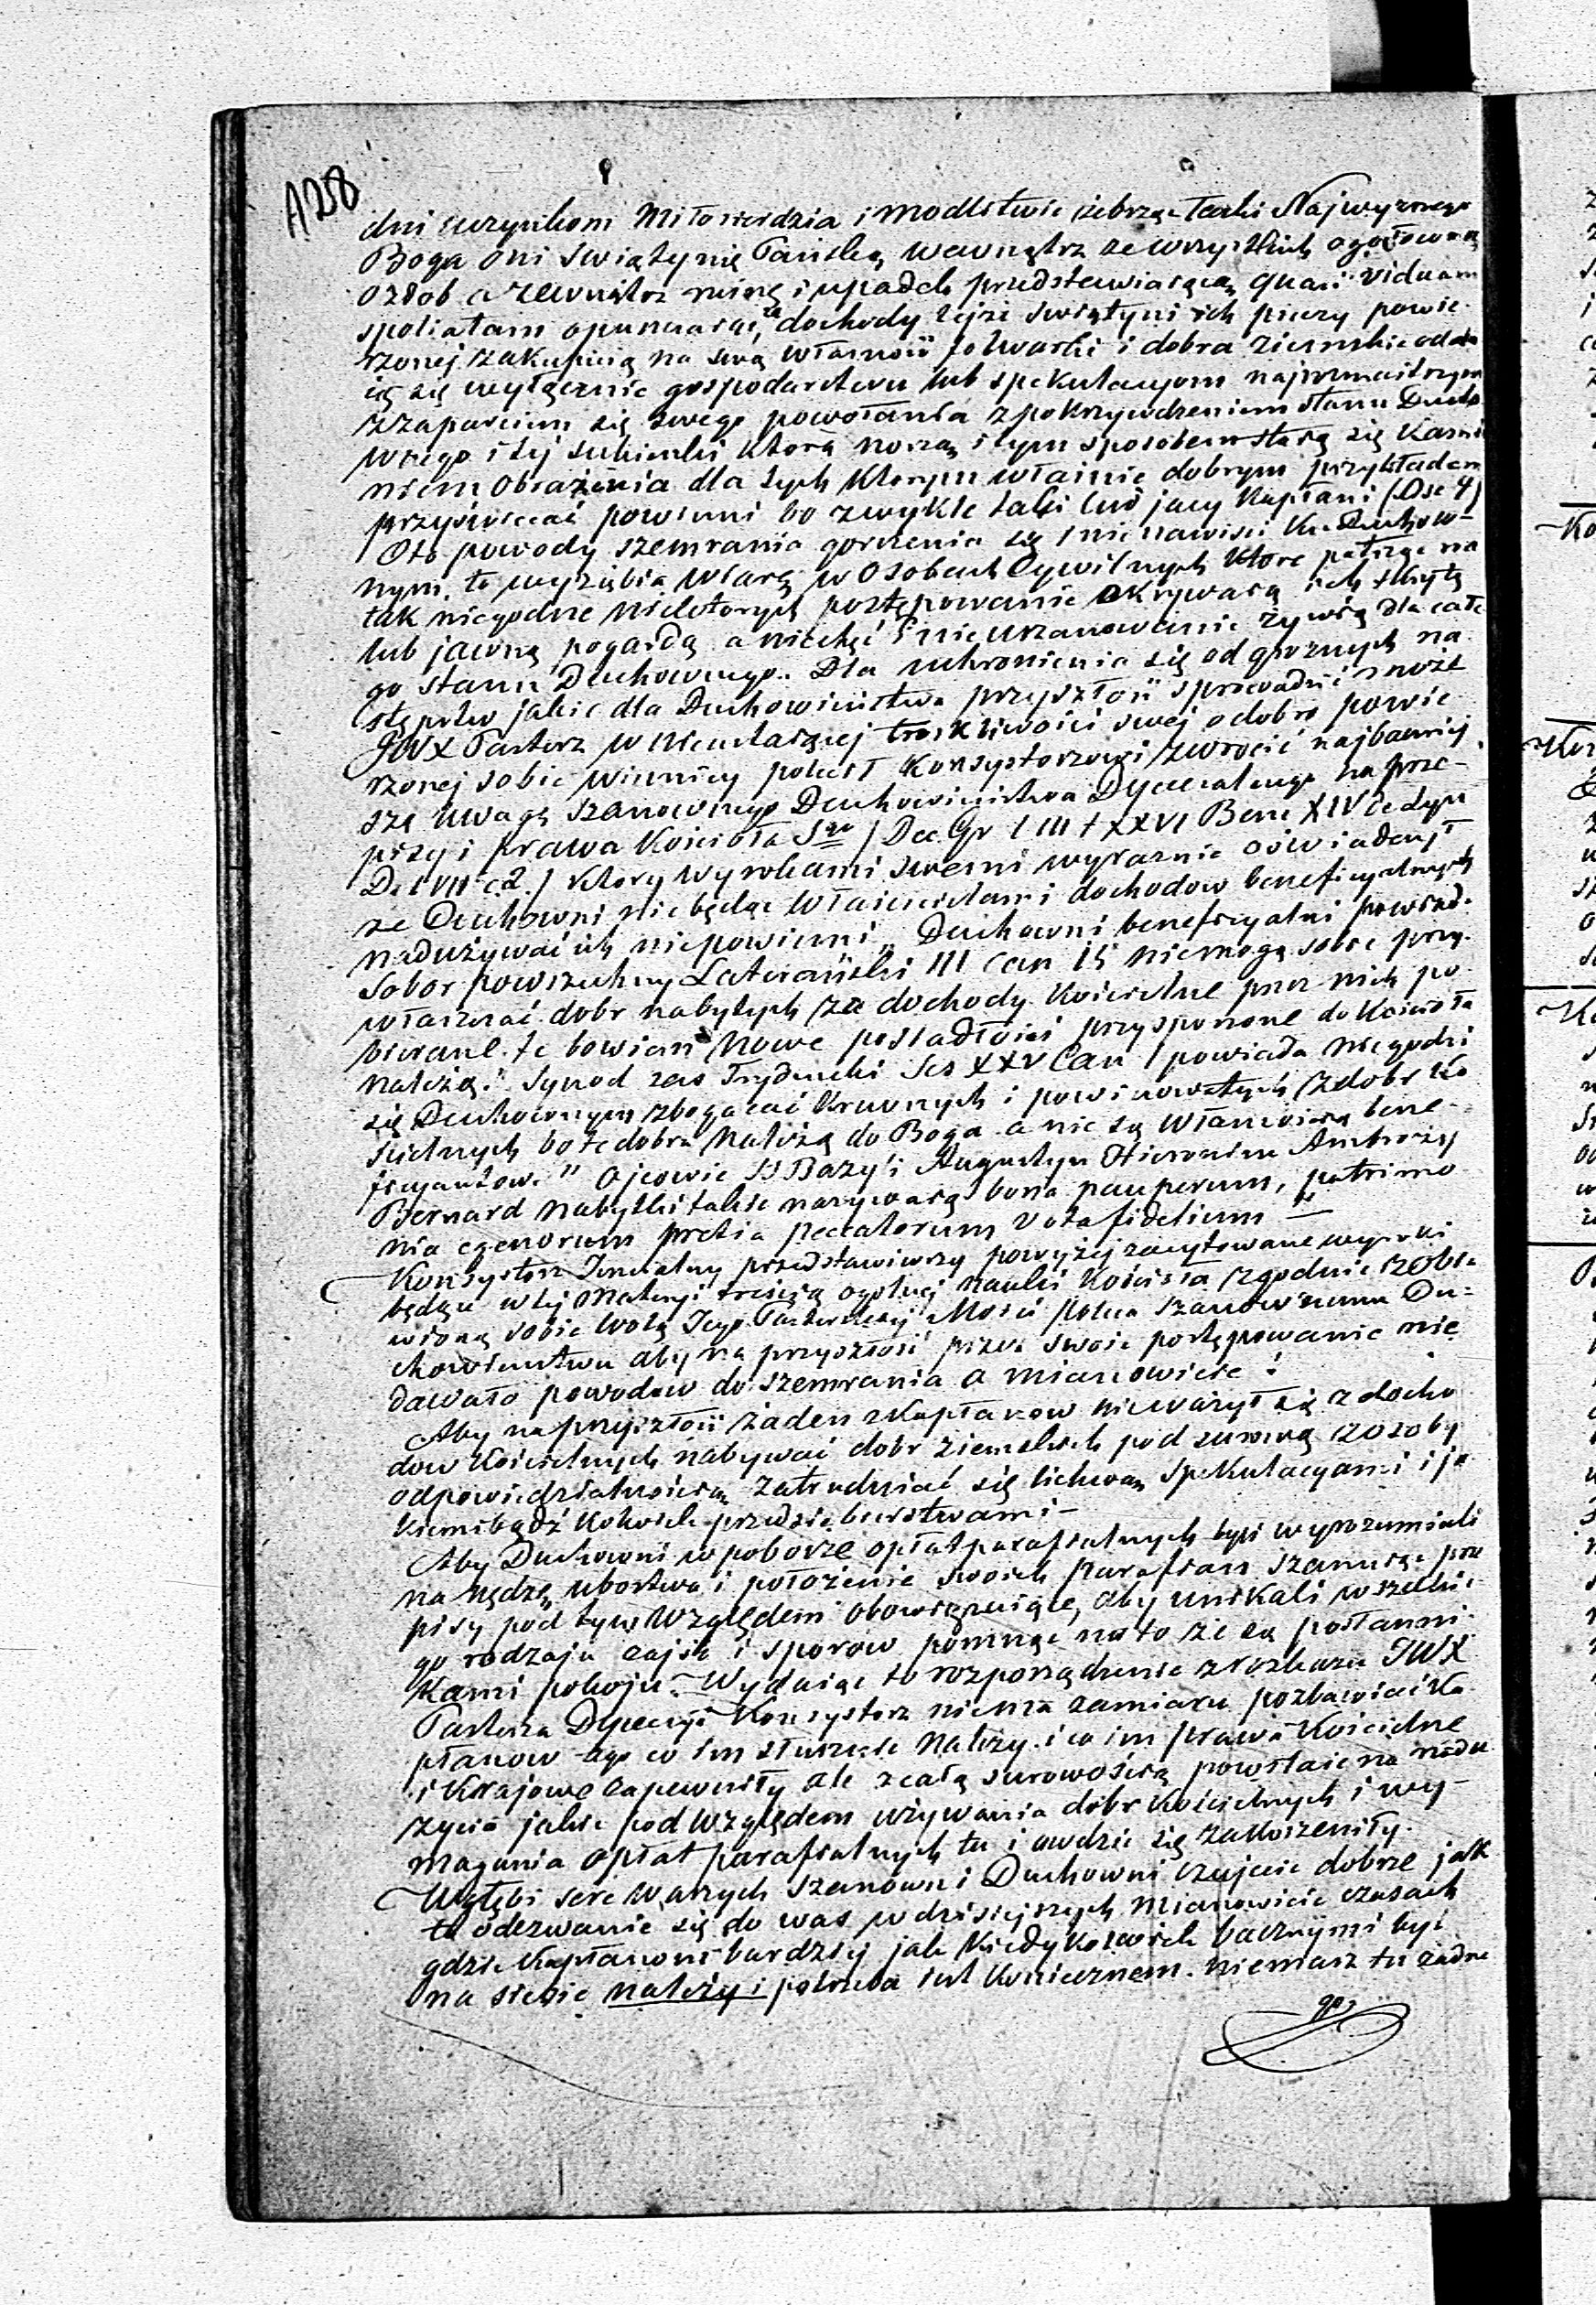 A258
dni uczynkom Miłosierdzia i modlitwie żebrząc łaski Najwyższego
Boga oni świątynię Pańską wewnątrz ze wszystkich ogołoconą
ozdob a zewnątrz ruinę i upadek przedstawiającą quasi viduam
spoliatam opuszczając, za dochody tejże świątyni ich pieczy powie-
rzonej zakupują na swą własność folwarki i dobra ziemskie odda
ią się wyłącznie gospodarstwu lub spekulacyom najrozmaitszym
z zaparciem się swego powołania z pokrzywdzeniem stanu Ducho
wnego i tej sukienki którą noszą i tym sposobem stają się kamie
niem obrażenia dla tych którym właśnie dobrym przykładem
przyświecać powinni bo zwykle taki lud jacy Kapłani (Ose 4)
Oto powody szemrania gorszenia się i nienawiści ku Duchow-
nym, to wyziębia wiarę w osobach Cywilnych które patrząc na
tak niegodne niektórych postępowanie okrywają ich skrytą
lub jawną pogardą a niechęć i nieuszanowanie żywią dla całe
go stanu Duchownego. Dla uchronienia się od groźnych na
stępstw jakie dla Duchowieństwa przyszłość sprowadzić może
JWX Pasterz w nieustającej troskliwości swej o dobro powie
rzonej sobie winnicy polecił Konsystorzowi zwrócić najbaczniej
szą uwagę szanownego Duchowieństwa Dyecezalnego na prze-
pisy i prawa Kościoła Sgo / Dec. Gr l III t XXVI Bene XIV de Syn
D. l VII c 2. / który wyrokami swemi wyraźnie oświadczył
że Duchowni nie będąc właścicielami dochodow beneficyalnych
nadużywać ich niepowinni „Duchowni beneficyalni powiad.
Sobor powszechny Laterański III can 15 niemogą sobie przy-
właszczać dobr nabytych za dochody Kościelne przez nich po
bierane. te bowiem nowe posiadłości przysporzone do Kościoła
należą." Synod zas Trydencki Ses XXV Can 1 powiada niegodzi
się Duchownym zbogacać krewnych i powinowatych z dobr Ko
ścielnych bo te dobra należą do Boga a nie są własnością bene-
ficyantow." Ojcowie SS Bazyli Augustyn Hieronim Ambroży
Bernard nabytki takie nazywają bona pauperum, patrimo
nia egenorum pretia peccatorum vota fidelium —
Konsystorz Jeneralny przedstawiwszy powyżej zacytowane wyroki
będące w tej materyi treścią ogolnej nauki Kościoła zgodnie z obja
wioną sobie wolą Jego Pasterskiej Mości poleca szanownemu Du-
chowieństwu aby na przyszłość przez swoie postępowanie nie
dawało powodow do szemrania a mianowicie:
Aby na przyszłość żaden z Kapłanow nieważył się z docho
dow Kościelnych nabywać dobr ziemskich pod surową z osoby
odpowiedzialnością zatrudniać się lichwą spekulacyami i ja
kiemibądź kolwiek przedsiębierstwami —
Aby Duchowni w poborze opłat parafialnych byli wyrozumiali
na nędzę ubostwa i położenie swoich parafian szanując prze
pisy pod tym względem obowiązujące, aby unikali wszelkie
go rodzaju zajść i sporow pomnąc na to że są posłanni-
kami pokoju. Wydając to rozporządzenie z rozkazu JWX
Pasterza Dyecezyi Konsystorz niema zamiaru pozbawiać Ka
płanow tego co im słusznie należy i co im prawa Kościelne
i Krajowe zapewniły ale z całą surowością powstaie na nadu
życia jakie pod względem używania dobr Kościelnych i wy-
magania opłat parafialnych tu i owdzie się zakorzeniły.
W głębi serc waszych szanowni Duchowni czujecie dobrze jak
to odezwanie się do was w dzisiejszych mianowicie czasach
gdzie Kapłanom bardziej jak kiedykolwiek bacznymi być
na siebie należy i potrzeba iest koniecznem. niemasz tu żadne